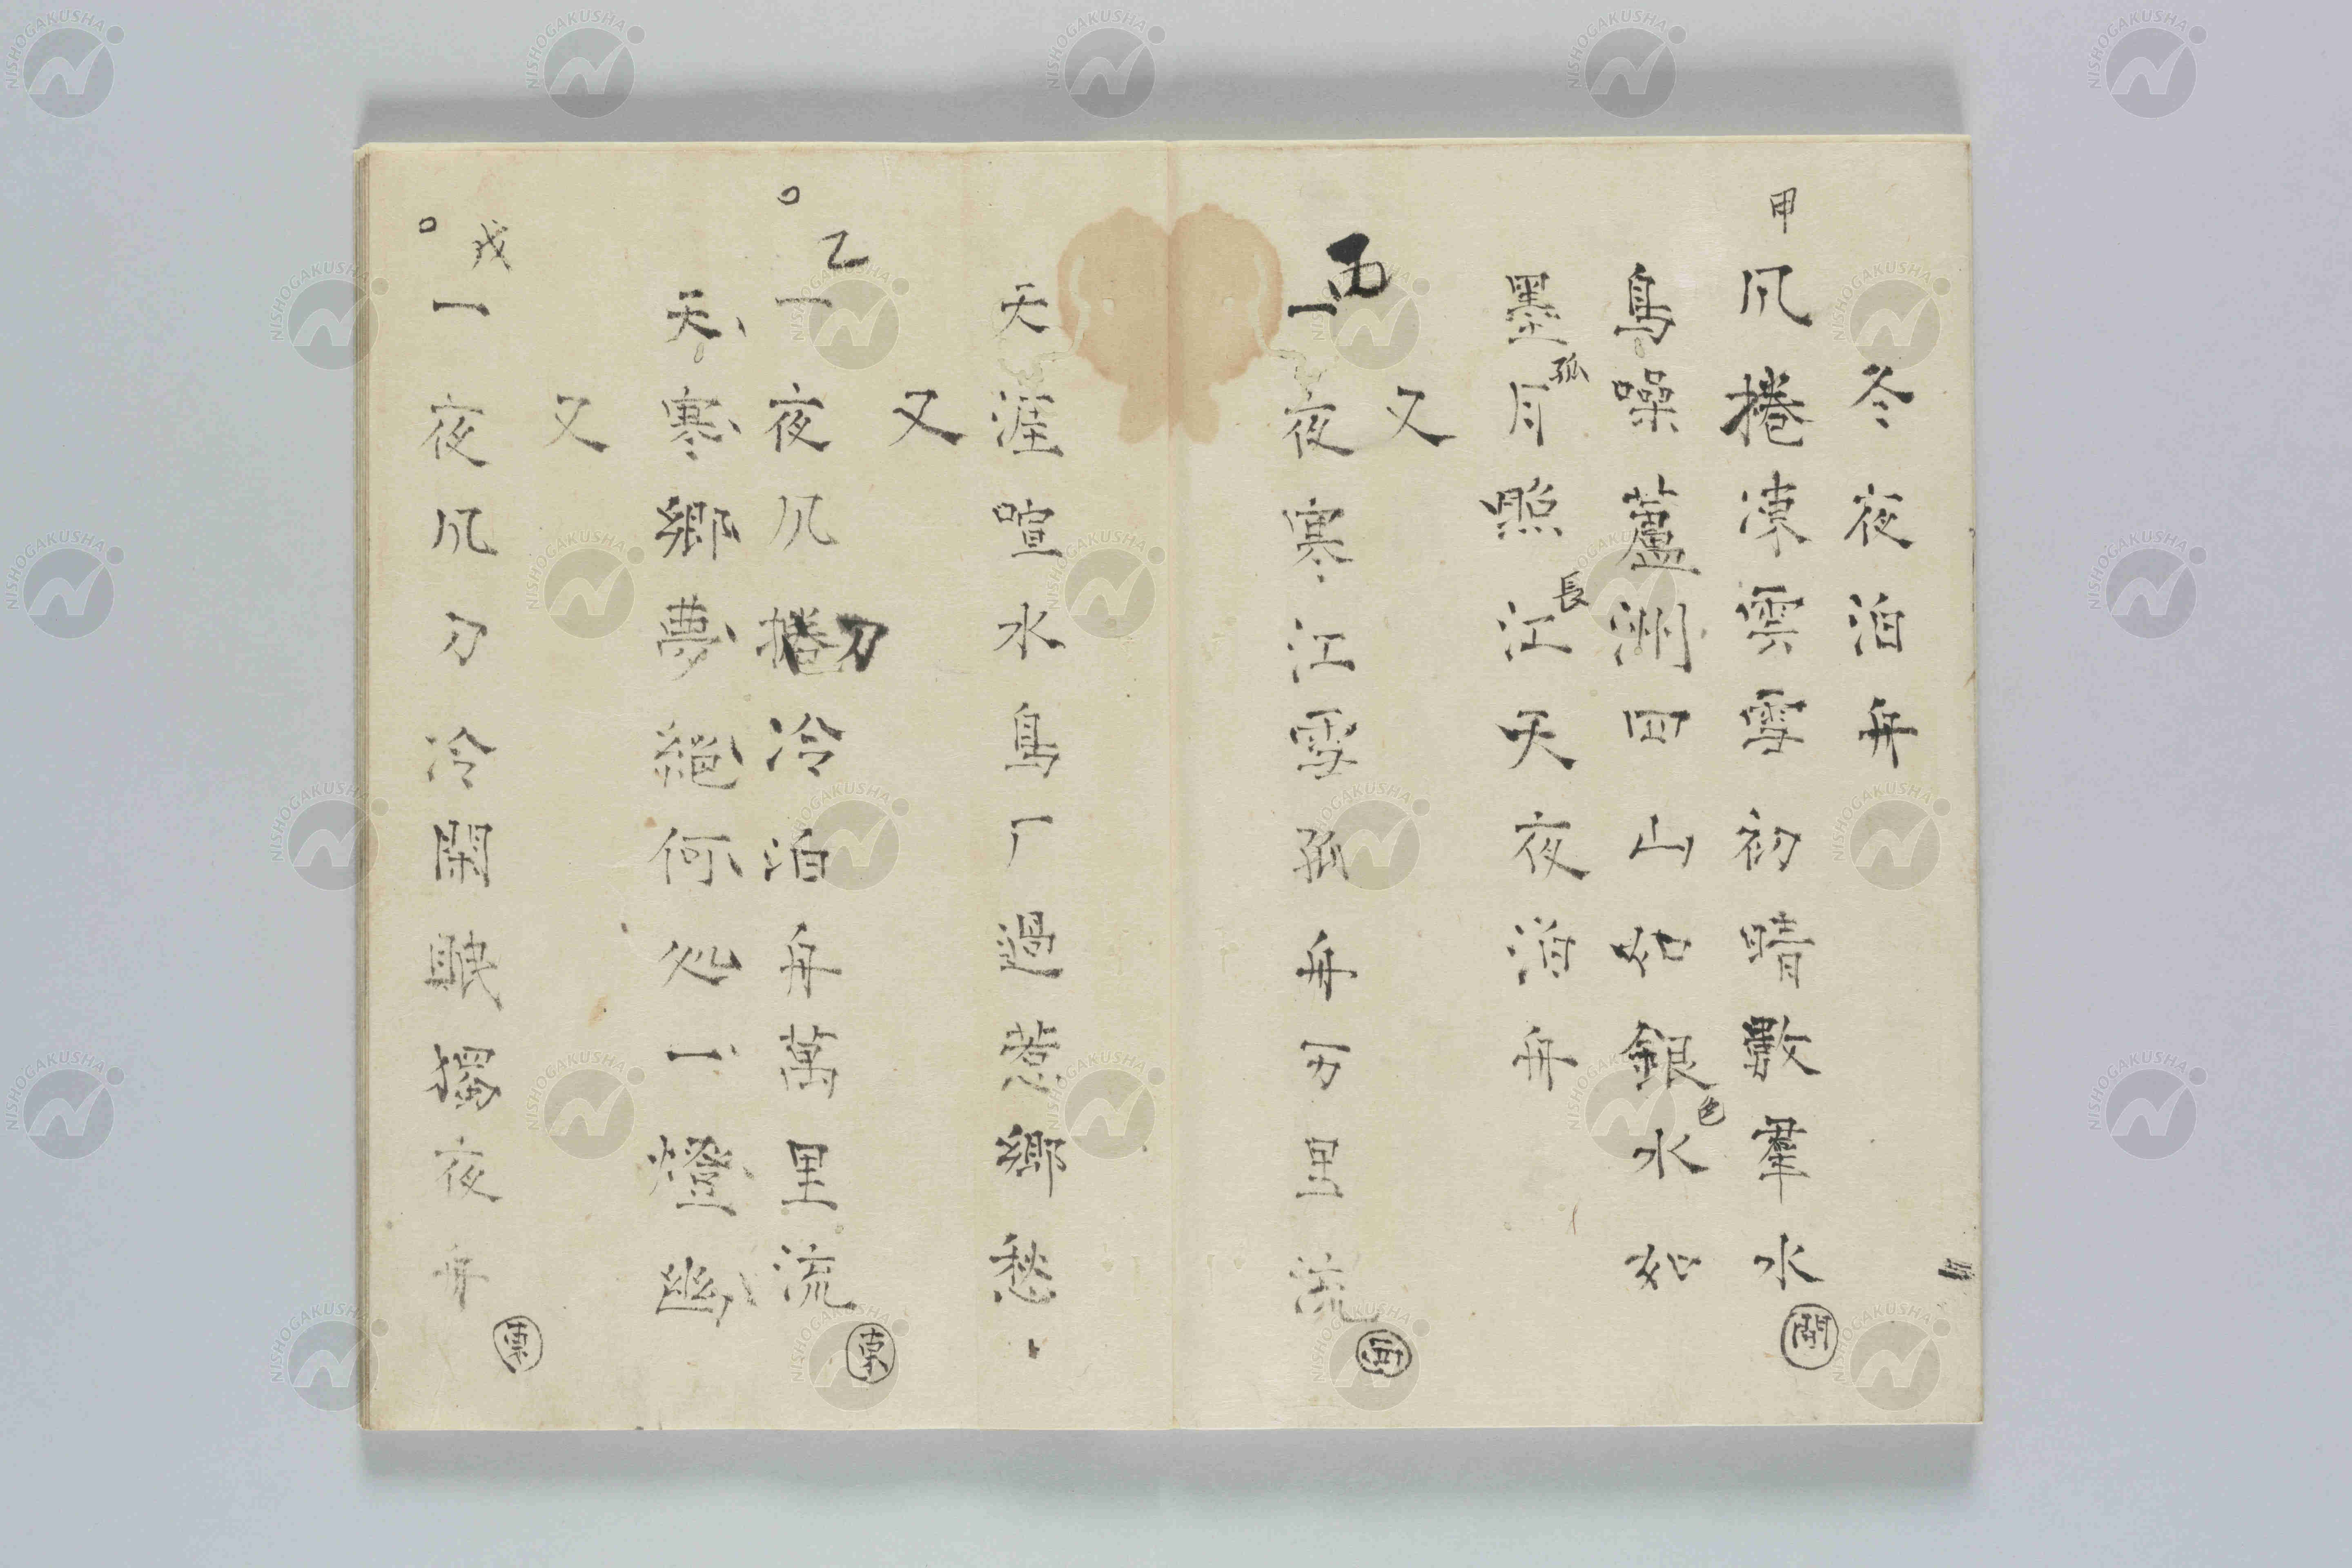 冬夜泊舟
甲
風捲凍雲雪初晴數羣水
開
鳥噪蘆洲四山如銀色水如
墨孤月照長江天夜泊舟
又
丙
一夜寒江雪孤舟万里流
海
天涯喧水鳥厂過惹鄉愁
又
乙
一夜風捲刀冷泊舟萬里流
東
天寒鄉夢絕何处一燈幽
又
戊
一夜風刀冷閑眠獨夜舟
東
NISHOGAKUSHA